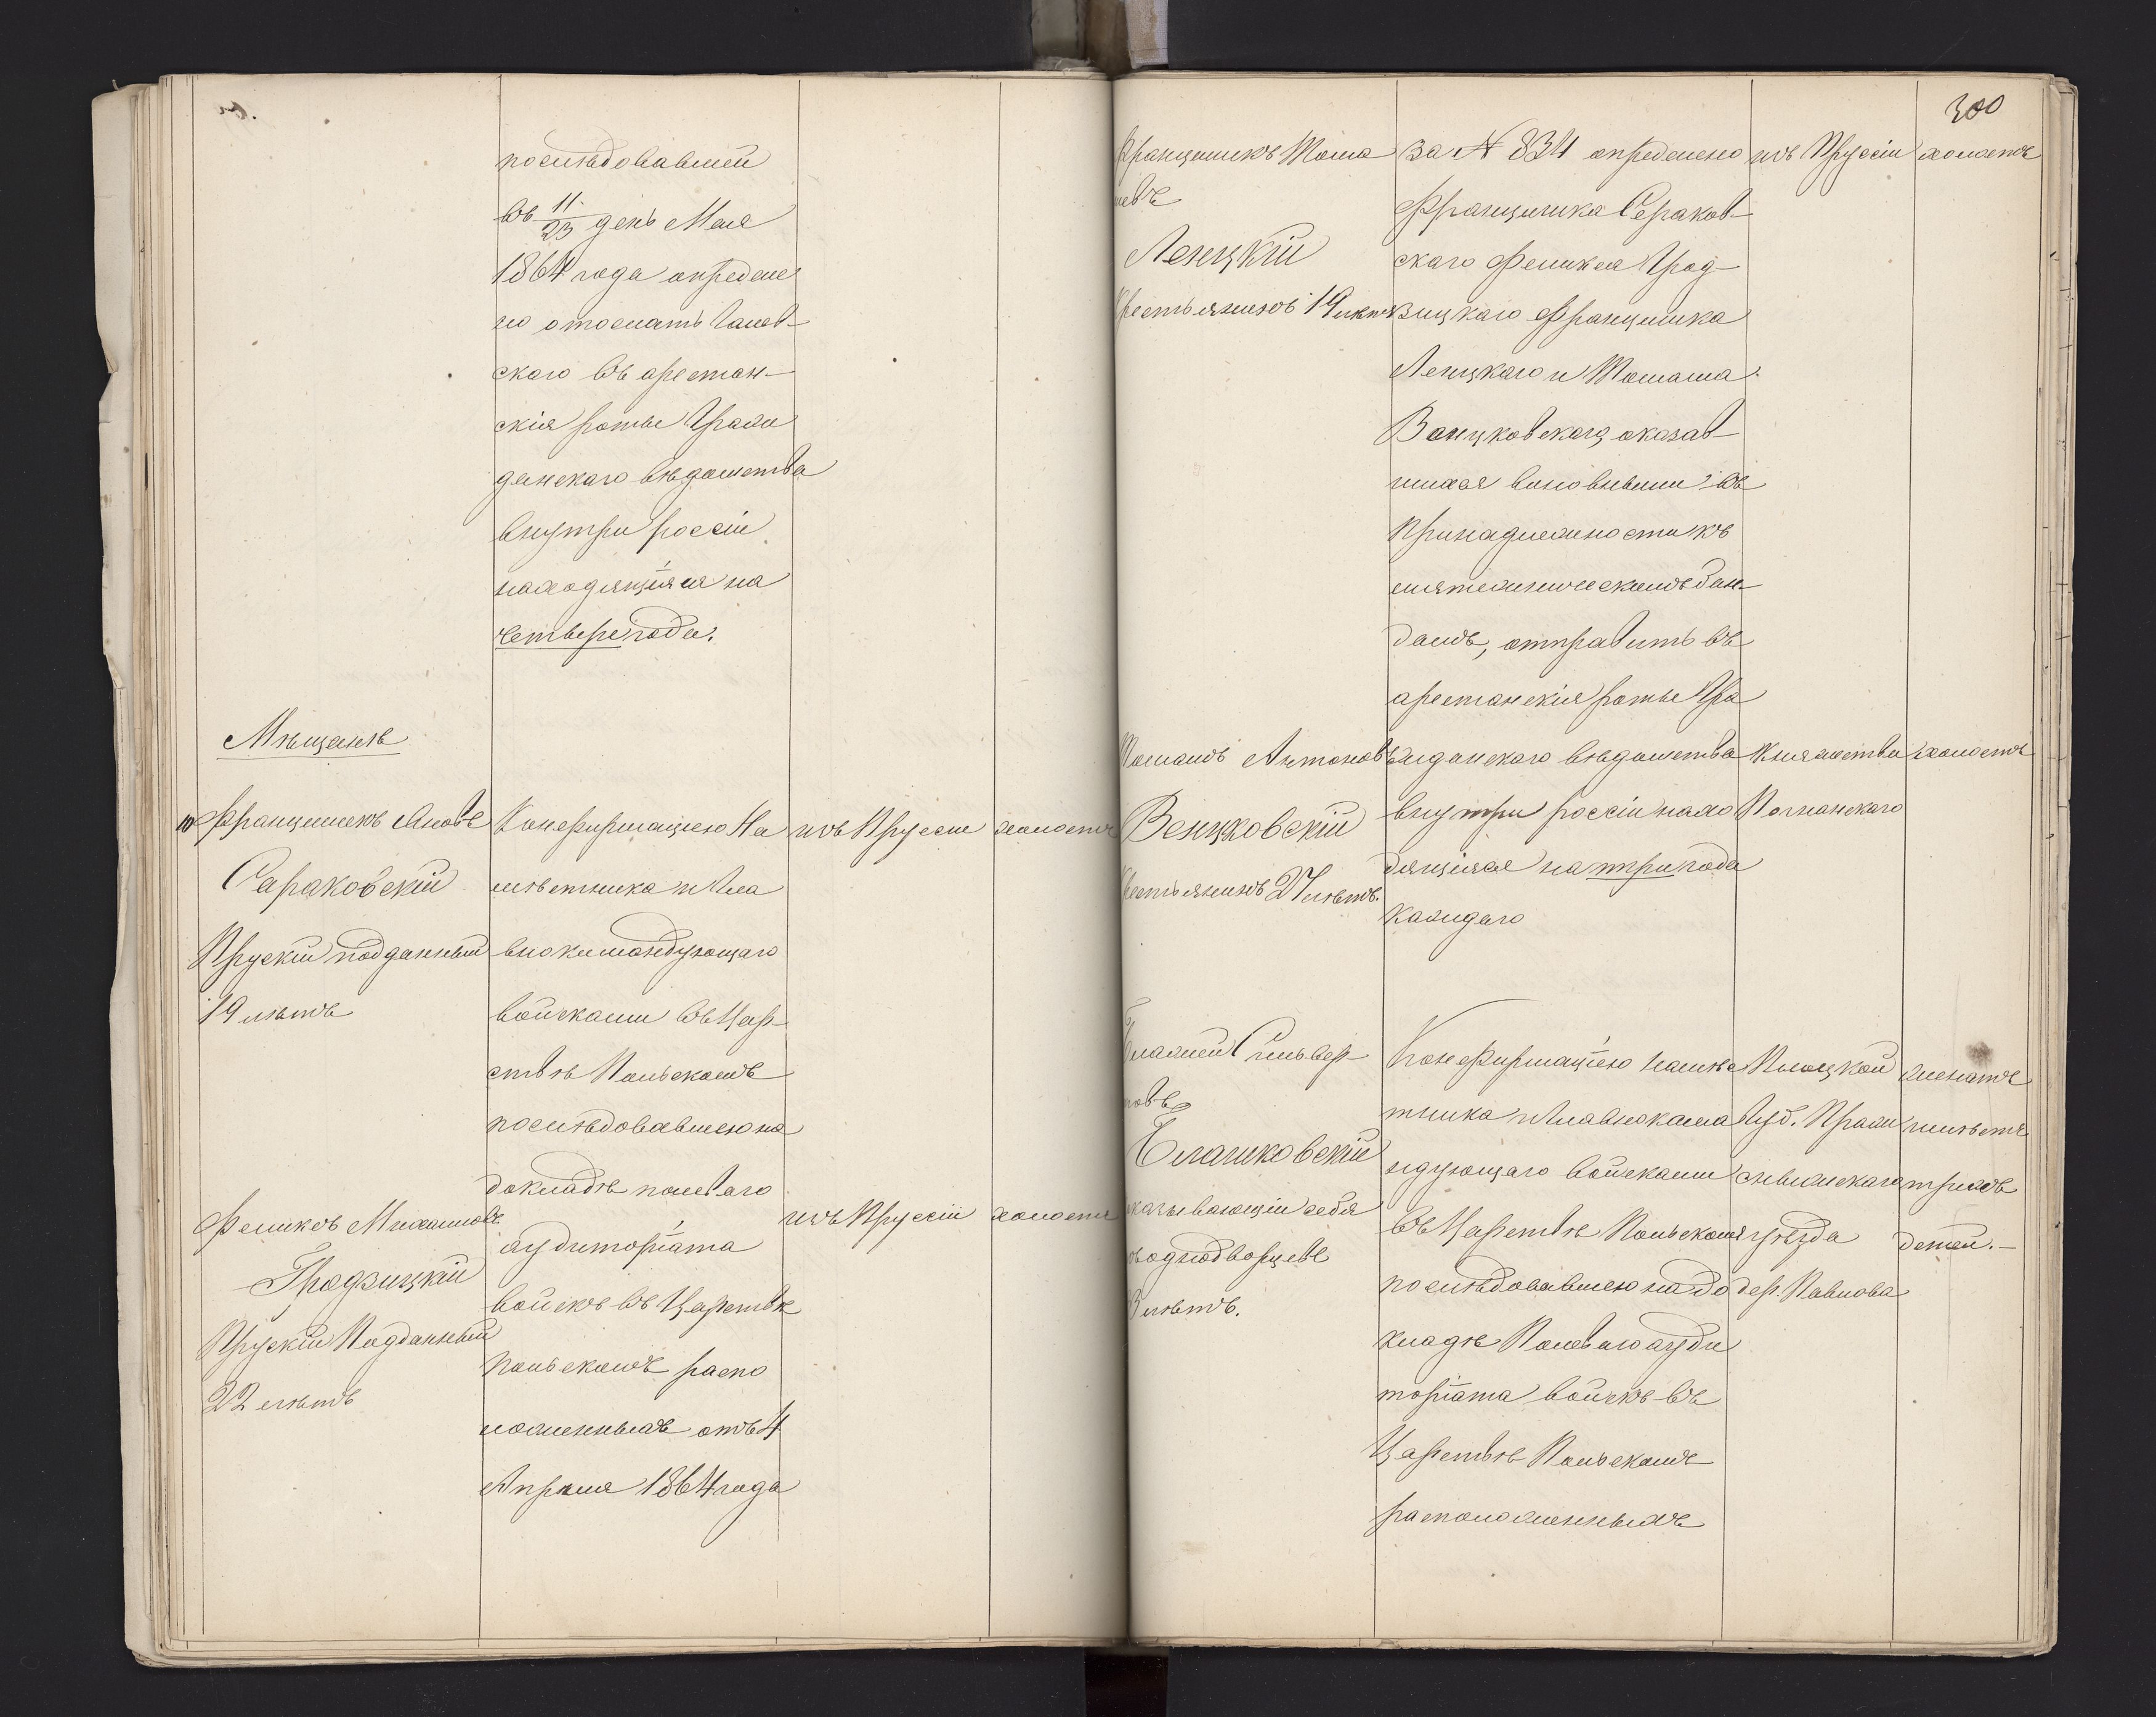 послѣдовавшей
въ 11/23 день Мая
1864 года определе
но отослать
скаго въ арестан-
скія роты Граж
данскаго вѣдомства
внутри россіи
находящіяся на
четыре года.
Мѣщане
10 Францишекъ
Сераковскій
Прускій подданный
19 лѣтъ
Конфирмаціею На
мѣстника и Гла
внокомандующаго
войсками въ Цар-
ствѣ Польскомъ
послѣдовавшею на
докладѣ полеваго
аудиторіата
войскъ въ Царствѣ
польскомъ распо
ложенныхъ отъ 4
Апреля 1864 года
изъ Пруссіи
холостъ
Феликсъ Михаиловъ
Гродзицкій
Прускій Подданный
22 лѣтъ
изъ Пруссіи
холостъ
300
Францишекъ Тома
шевъ
Ленцкій
Крестьянинъ 19 лѣтъ
за N 834 определено
Францишка Сераков-
скаго Феликса Грод-
зицкаго Францишка
Ленцкаго и Томаша
Венцковскаго, оказав-
шихся виновными въ
принадлежности къ
мятежническимъ бан-
дамъ, отправить въ
арестанскія роты Гра
жданскаго вѣдомства
внутри россіи нахо
дящіяся на три года
каждаго
изъ Пруссіи
холостъ
Томашъ Антоновъ
Венцковскій
Крестьянинъ 27 лѣтъ.
Княжества
Познанскаго
холостъ
Блажей Сильвер-
ровъ
Блажковскій
казывающій себя
однодворцемъ
лѣтъ.
Конфирмаціею намѣс
тника и Главнокома
ндующаго войсками
въ Царствѣ Польскомъ
послѣдовавшею на до
кладѣ Полеваго ауди
торіата войскъ въ
Царствѣ Польскомъ
расположенныхъ
Плоцкой
Губ. Праж
снышскаго
уѣзда
дер. Павлова
женатъ
имѣетъ
троихъ
детей.-